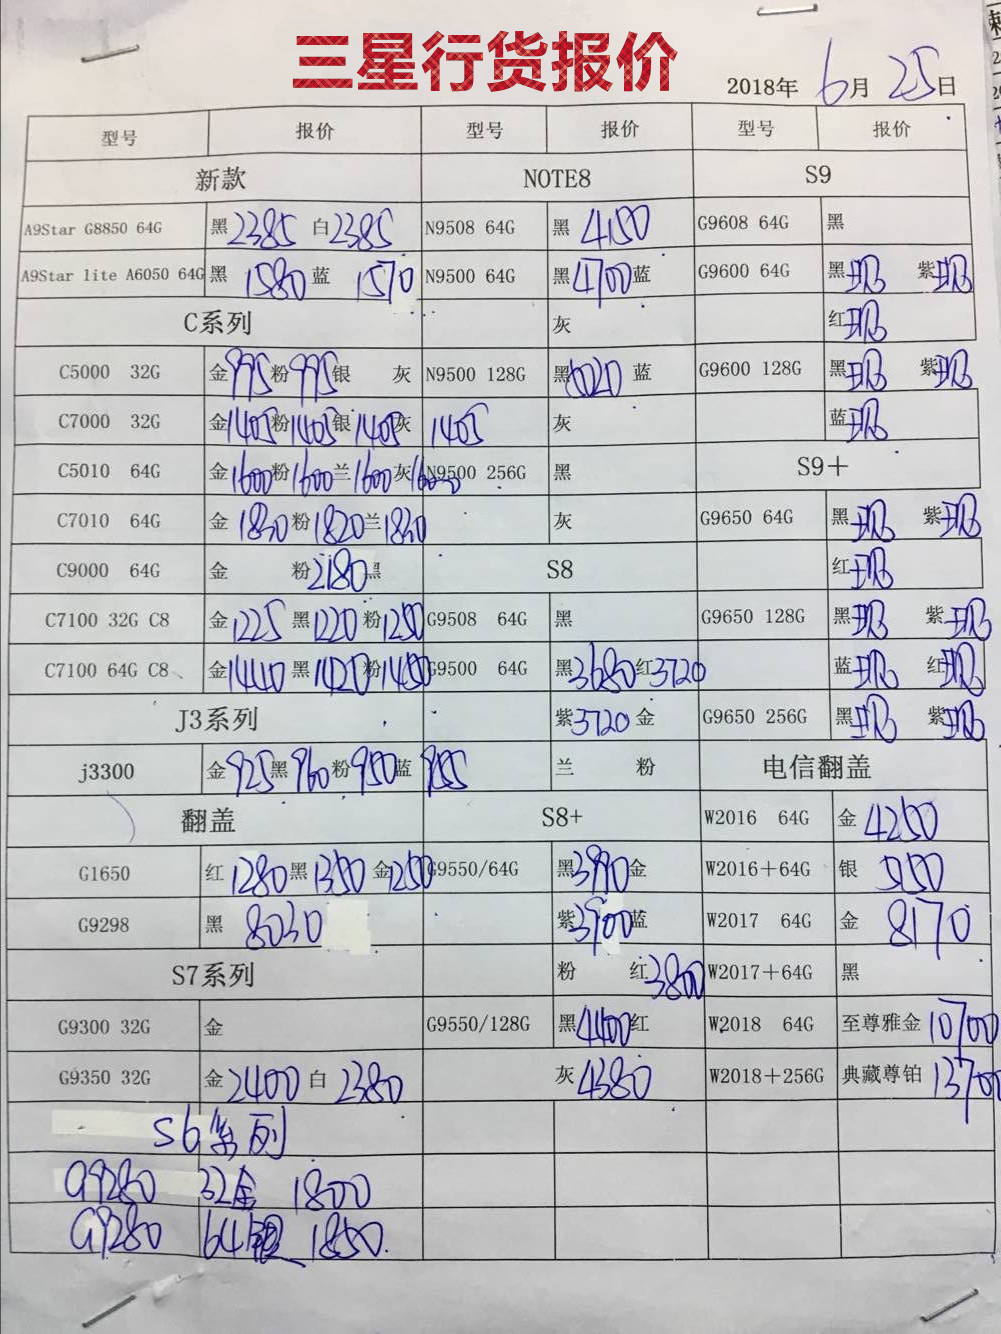 三星行货报价
2018年 6月 25日
型号 报价 型号 报价 型号 报价
新款 NOTE8 S9
A9Star G8850 64G 黑2385 白2385 N9508 64G 黑 4150 G9608 64G 黑
A9Star lite A6050 64G 黑 1580 蓝 1570 N9500 64G 黑4700蓝 G9600 64G 黑现 紫现
C系列 灰 红现
C5000 32G 金995粉995银 灰 N9500 128G 黑 蓝 G9600 128G 黑现 紫现
C7000 32G 金1405粉1405银1405灰 1405 灰 蓝现
C5010 64G 金1600粉1600兰1600灰1600 N9500 256G 黑 S9+
C7010 64G 金 1830粉1820兰1830 灰 G9650 64G 黑现 紫现
C9000 64G 金 粉2180黑 S8 红现
C7100 32G C8 金1225 黑1220粉1250 G9508 64G 黑 G9650 128G 黑现 紫现
C7100 64G C8 金1440黑1420粉1450 G9500 64G 黑3680红3720 蓝现 红现
J3系列 紫3720 金 G9650 256G 黑现 紫现
j3300 金925黑960粉950蓝 955 兰 粉 电信翻盖
翻盖 S8+ W2016 64G 金4250
G1650 红1280黑1350金1250 G9550/64G 黑3990金 W2016+64G 银
G9298 黑 8030 紫3900蓝 W2017 64G 金 8170
S7系列 粉 红3800 W2017+64G 黑
G9300 32G 金 G9550/128G 黑4400红 W2018 64G 至尊雅金10700
G9350 32G 金2400白2380 灰4380 W2018+256G 典藏尊铂13700
S6系列
G9280 32金 1800
G9280 64银 1850